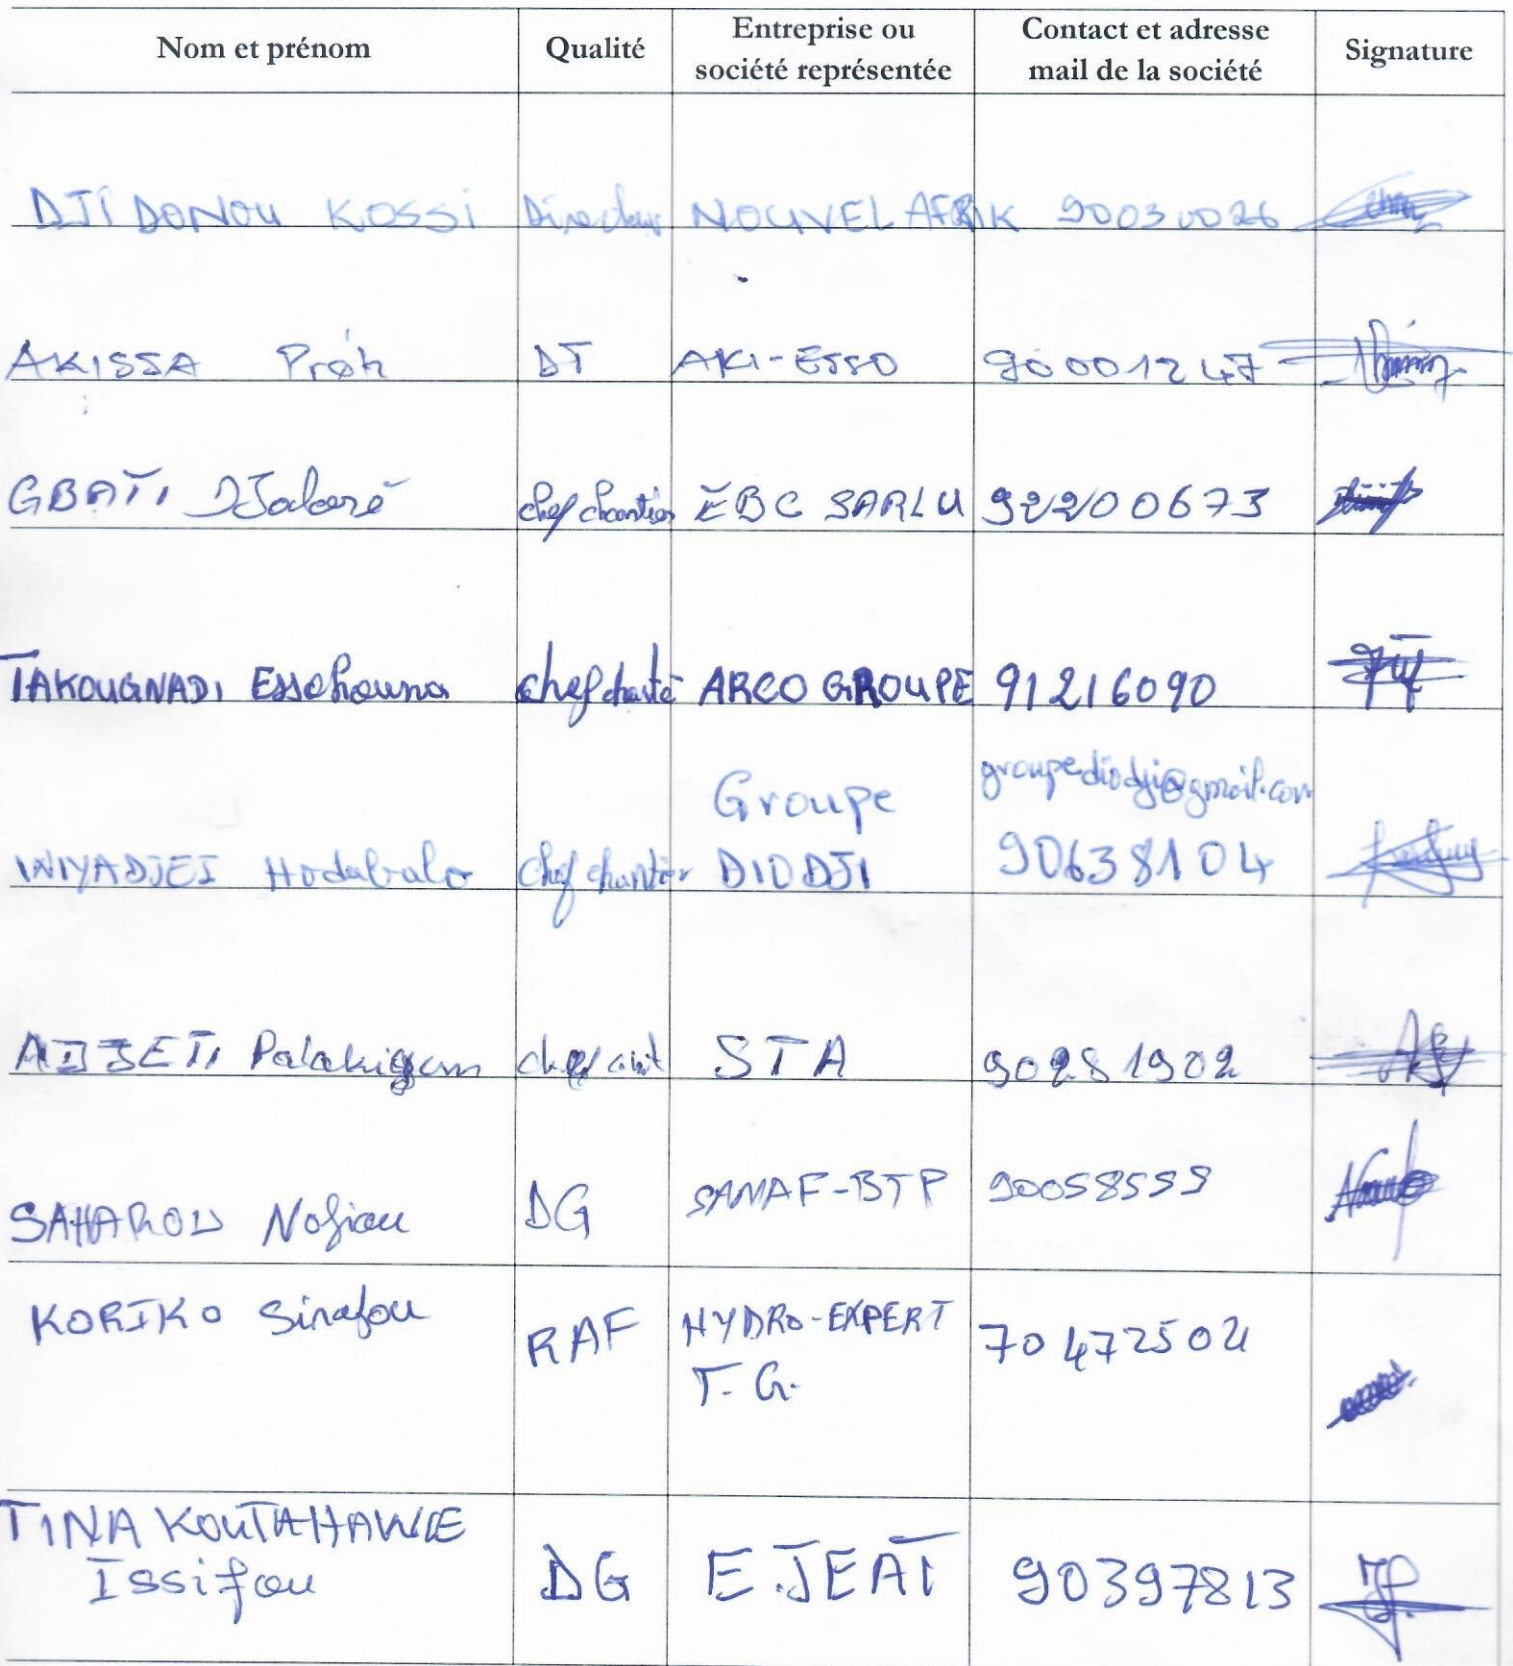 Nom et prénom Qualité Entreprise ou société représentée Contact et adresse mail de la société Signature
DJIDONOU KOSSI Directeur NOUVEL AFRIK 90030026
AKISSA DT AKI-ESSO 90001247
GBATI chef chantier EBC SARLU 92200673
TAKOUGNADI Essohouna chef chanté ARCO GROUPE 91216090
groupediodji@gmail.com
Groupe
INIYADJEI Hodabalo chef chantier DIODJI 90638104
ADJETI Palakiyem STA 90281902
SAHAROU Nofiou DG SAMAF-BTP 90058559
KORIKO Sirafou RAF HYDRO-EXPERT 70472502
T.G.
TINA KOUTAHAWE
Issifou DG EJEAT 90397813